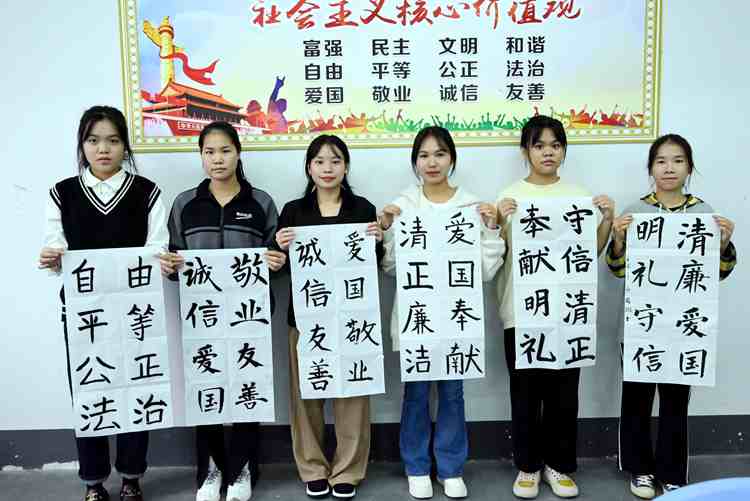 社会主义核心价值观
富强 民主 文明 和谐
自由 平等 公正 法治
爱国 敬业 诚信 友善
自由
平等
公正
法治
敬业友善
诚信爱国
爱国敬业
诚信友善
爱国奉献
清正廉洁
守信清正
奉献明礼
清廉爱国
明礼守信